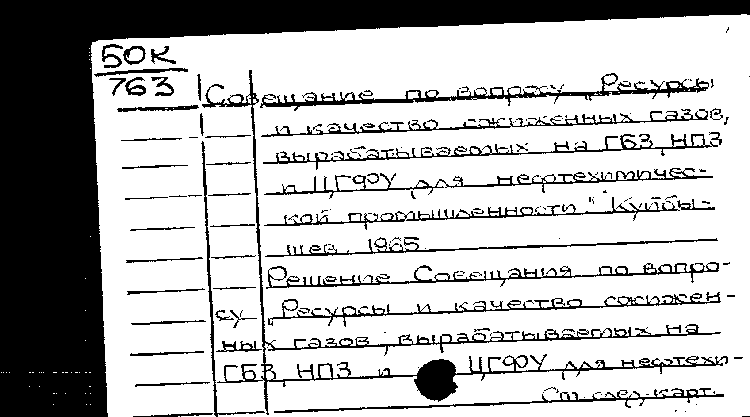 50К
763
Совещание по вопросу „Ресурсы
и качество сжиженных газов,
вырабатываемых на ГБЗ, НПЗ
и ЦГФУ для нефтехимичес-
кой промышленности". Куйбы-
шев. 1965.
Решение Совещания по вопро-
су „Ресурсы и качество сжижен-
ных газов, вырабатываемых на
ГБЗ, НПЗ и ЦГФУ для нефтехи-
См. след. карт.